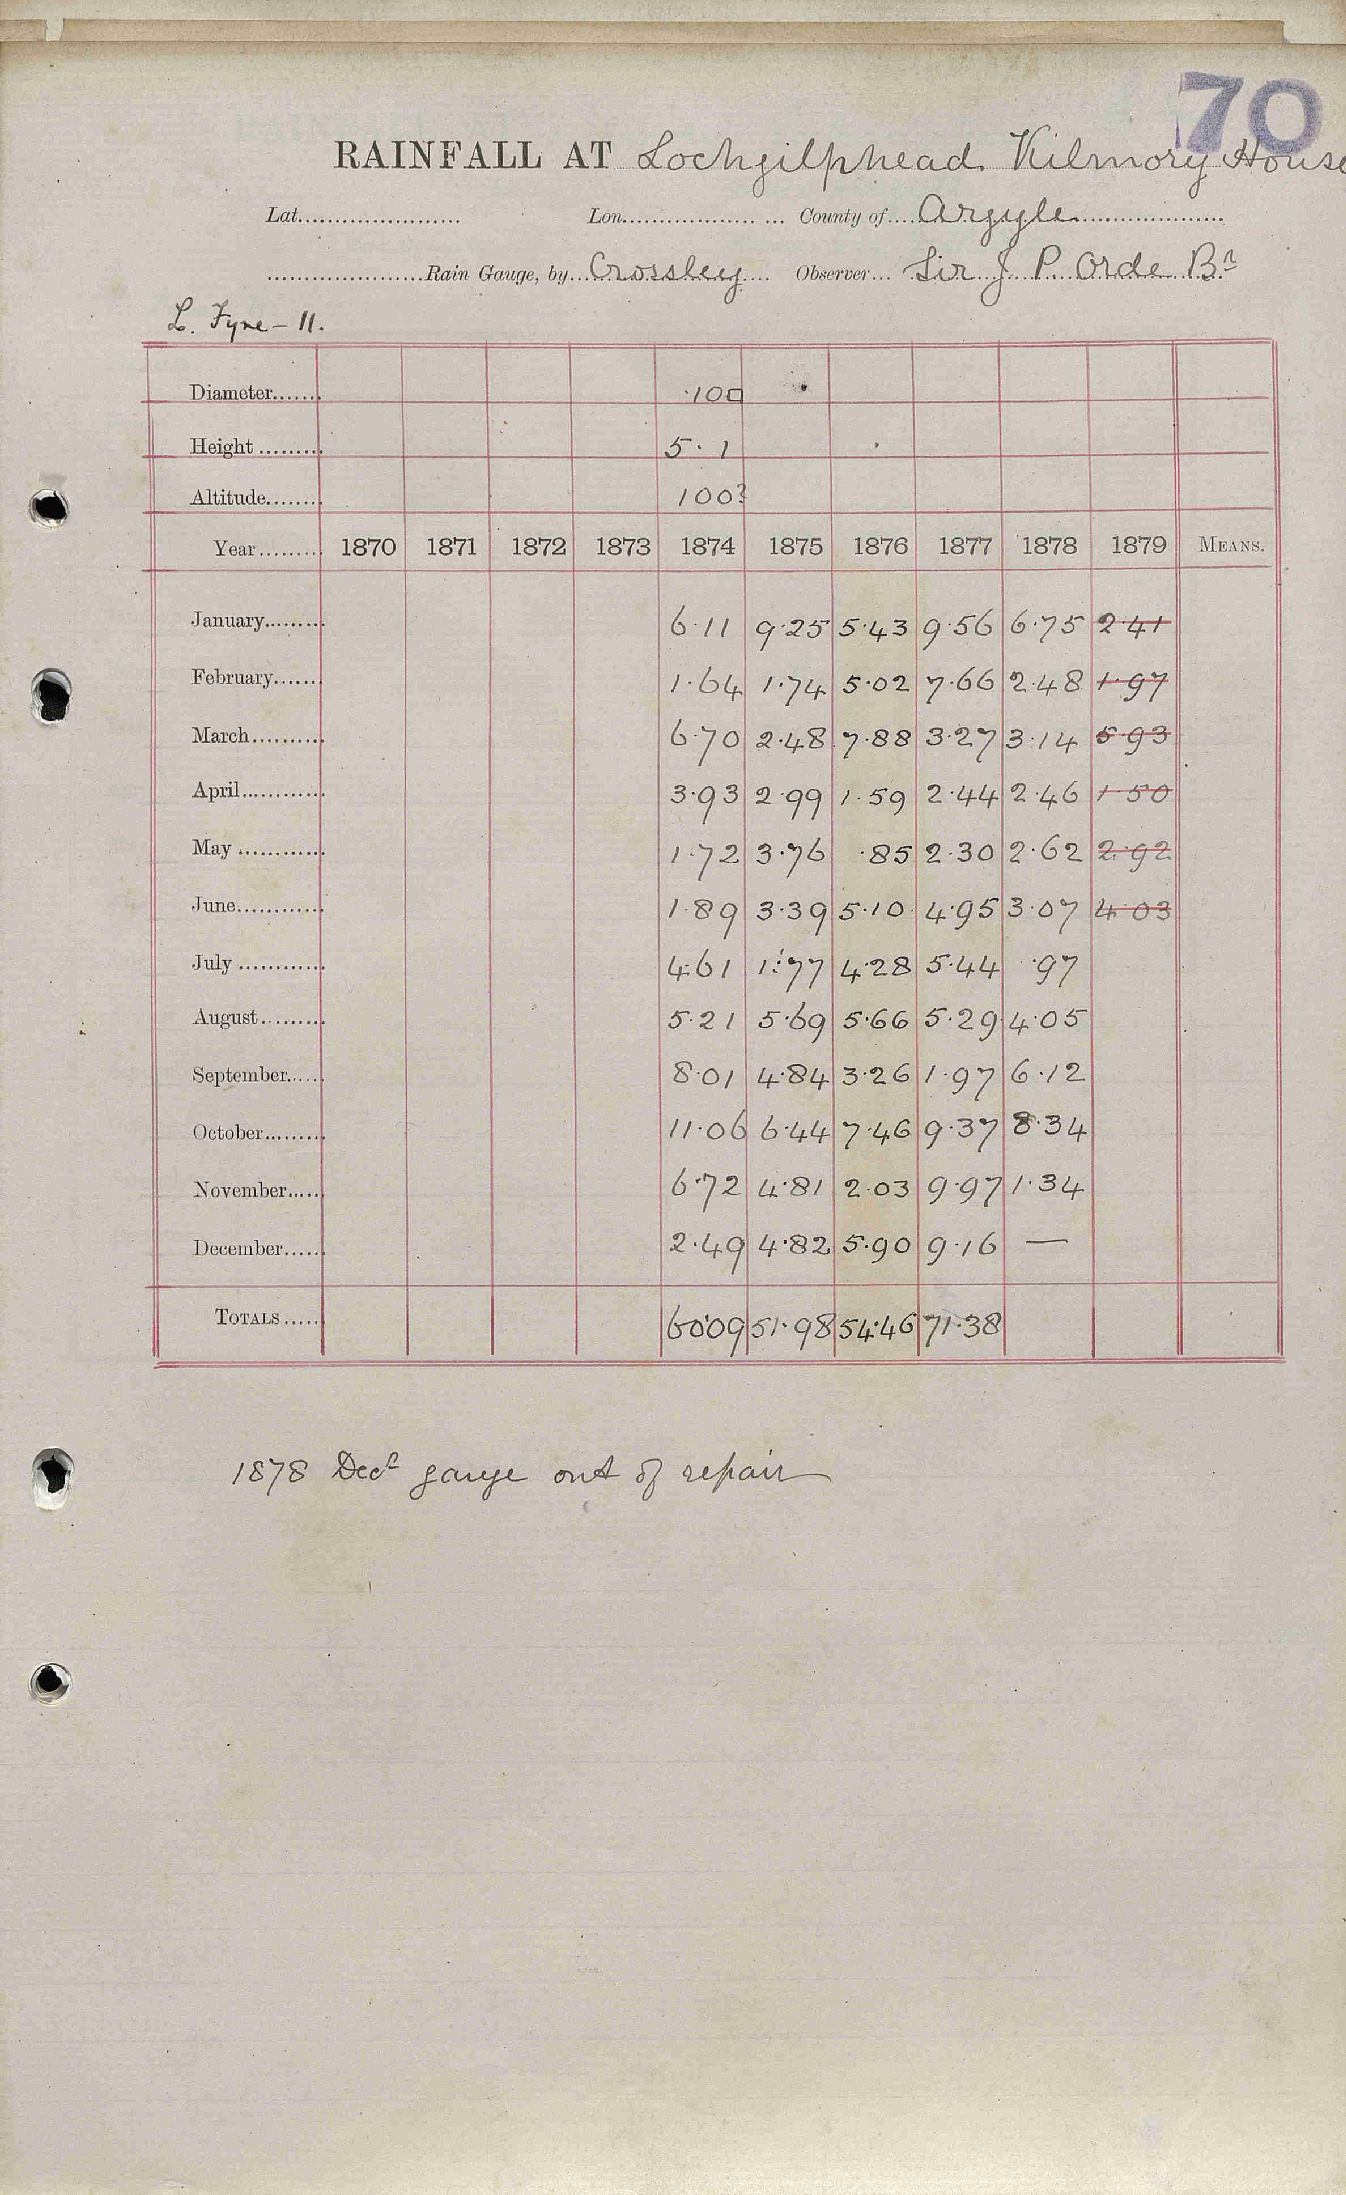 70
RAINFALL AT Lochgilphead Kilmory House
Lat. Lon. County of Argyle
Rain Gauge, by Crossley Observer Sir J P Orde Bt
L. Fyne - 11.
Diameter ·100
Height 5 · 1
Altitude 100?
Year 1870 1871 1872 1873 1874 1875 1876 1877 1878 1879 MEANS.
January 6·11 9·25 5·43 9·56 6·75 2·41
February 1·64 1·74 5·02 7·66 2·48 1·97
March 6·70 2·48 7·88 3·27 3·14 5·93
April 3·93 2·99 1·59 2·44 2·46 1·50
May 1·72 3·76 ·85 2·30 2·62 2·92
June 1·89 3·39 5·10 4·95 3·07 4·03
July 4·61 1·77 4·28 5·44 ·97
August 5·21 5·69 5·66 5·29 4·05
September 8·01 4·84 3·26 1·97 6·12
October 11·06 6·44 7·46 9·37 8·34
November 6·72 4·81 2·03 9·97 1·34
December 2·49 4·82 5·90 9·16 —
TOTALS 60·09 51·98 54·46 71·38
1878 Decr gauge out of repair